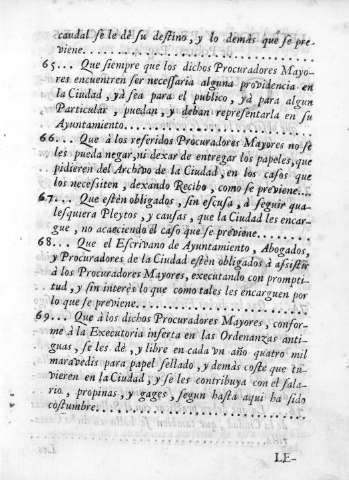 caudal se le dè su destino, y lo demàs que se pre-
viene.......................
65... Que siempre que los dichos Procuradores Mayo-
res encuentren ser necessaria alguna providencia en
la Ciudad, yà sea para el publico, yà para algun
Particular, puedan, y deban representarla en su
Ayuntamiento...................
66... Que à los referidos Procuradores Mayores no se
les pueda negar, ni dexar de entregar los papeles, que
pidieren del Archivo de la Ciudad, en los casos que
los necesiten, dexando Recibo, como se previene....
67... Que estèn obligados, sin escusa, à seguir qua-
lesquiera Pleytos, y causas, que la Ciudad les encar-
gue, no acaeciendo el caso que se previene........
68... Que el Escrivano de Ayuntamiento, Abogados,
y Procuradores de la Ciudad estèn obligados à assistir
à los Procuradores Mayores, executando con prompti-
tud, y sin interès lo que como tales les encarguen por
lo que se previene..................
69... Que à los dichos Procuradores Mayores, confor-
me à la Executoria inserta en las Ordenanzas anti-
guas, se les dè, y libre en cada vn año quatro mil
maravedis para papel sellado, y demàs coste que tu-
vieren en la Ciudad, y se les contribuya con el sala-
rio, propinas, y gages, segun hasta aqui ha sido
costumbre....................
LE-